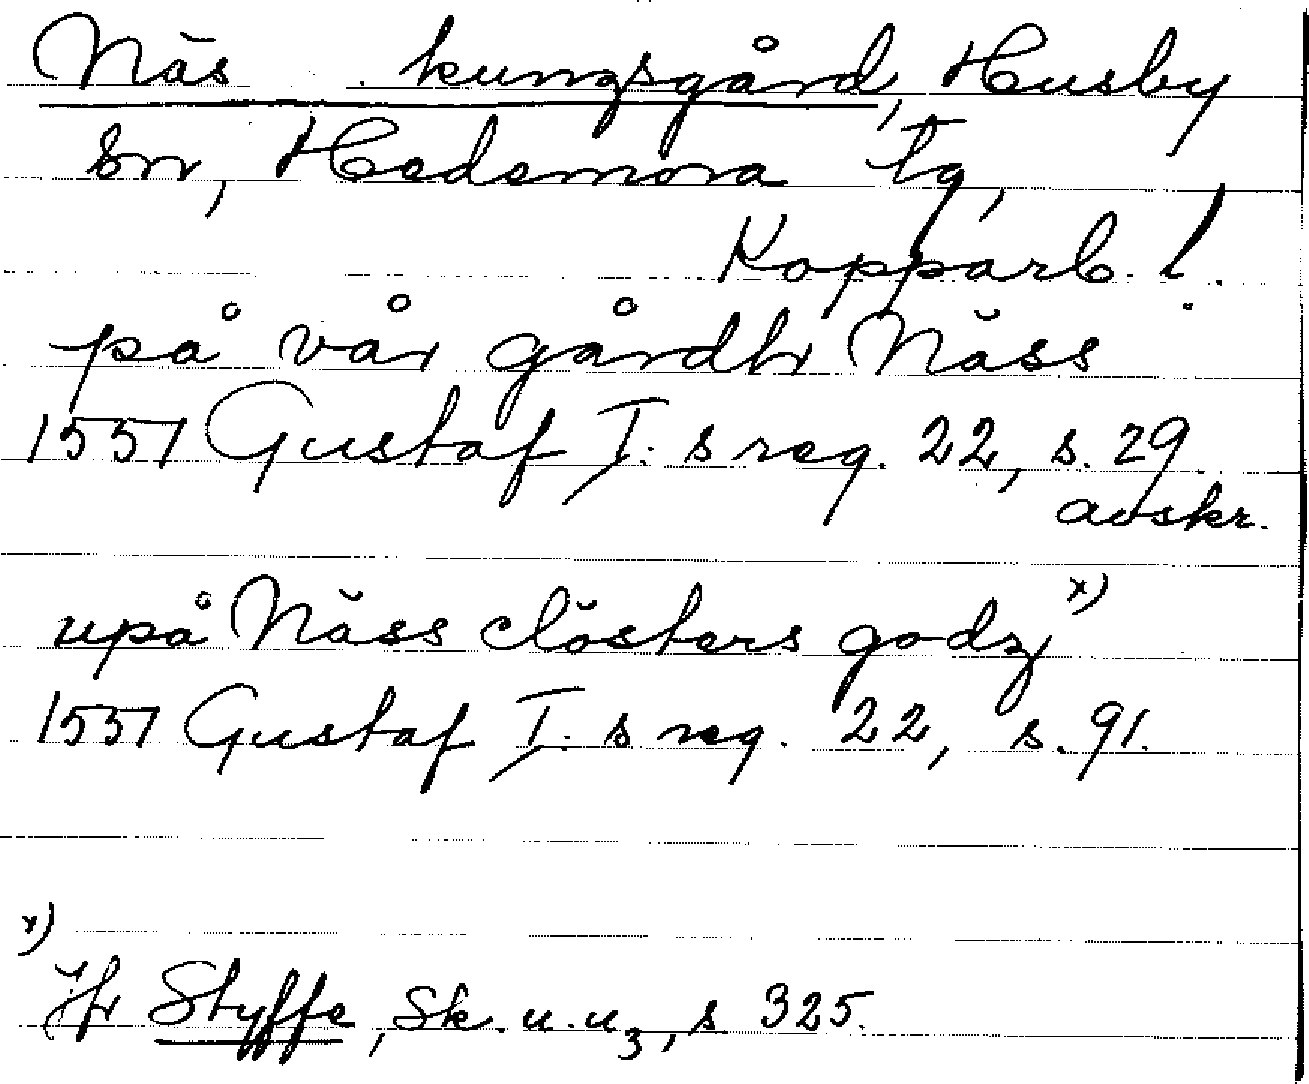 Näs kungsgård, Husby
sn, Hedemora tg,
Kopparb. l.
på vår gårdh Näss
1551 Gustaf I:s reg. 22, s. 29
avskr.
upå Näss clösters godz x)
1551 Gustaf I:s reg. 22, s. 91.
x)
Jfr Styffe, Sk. u. u3, s 325.